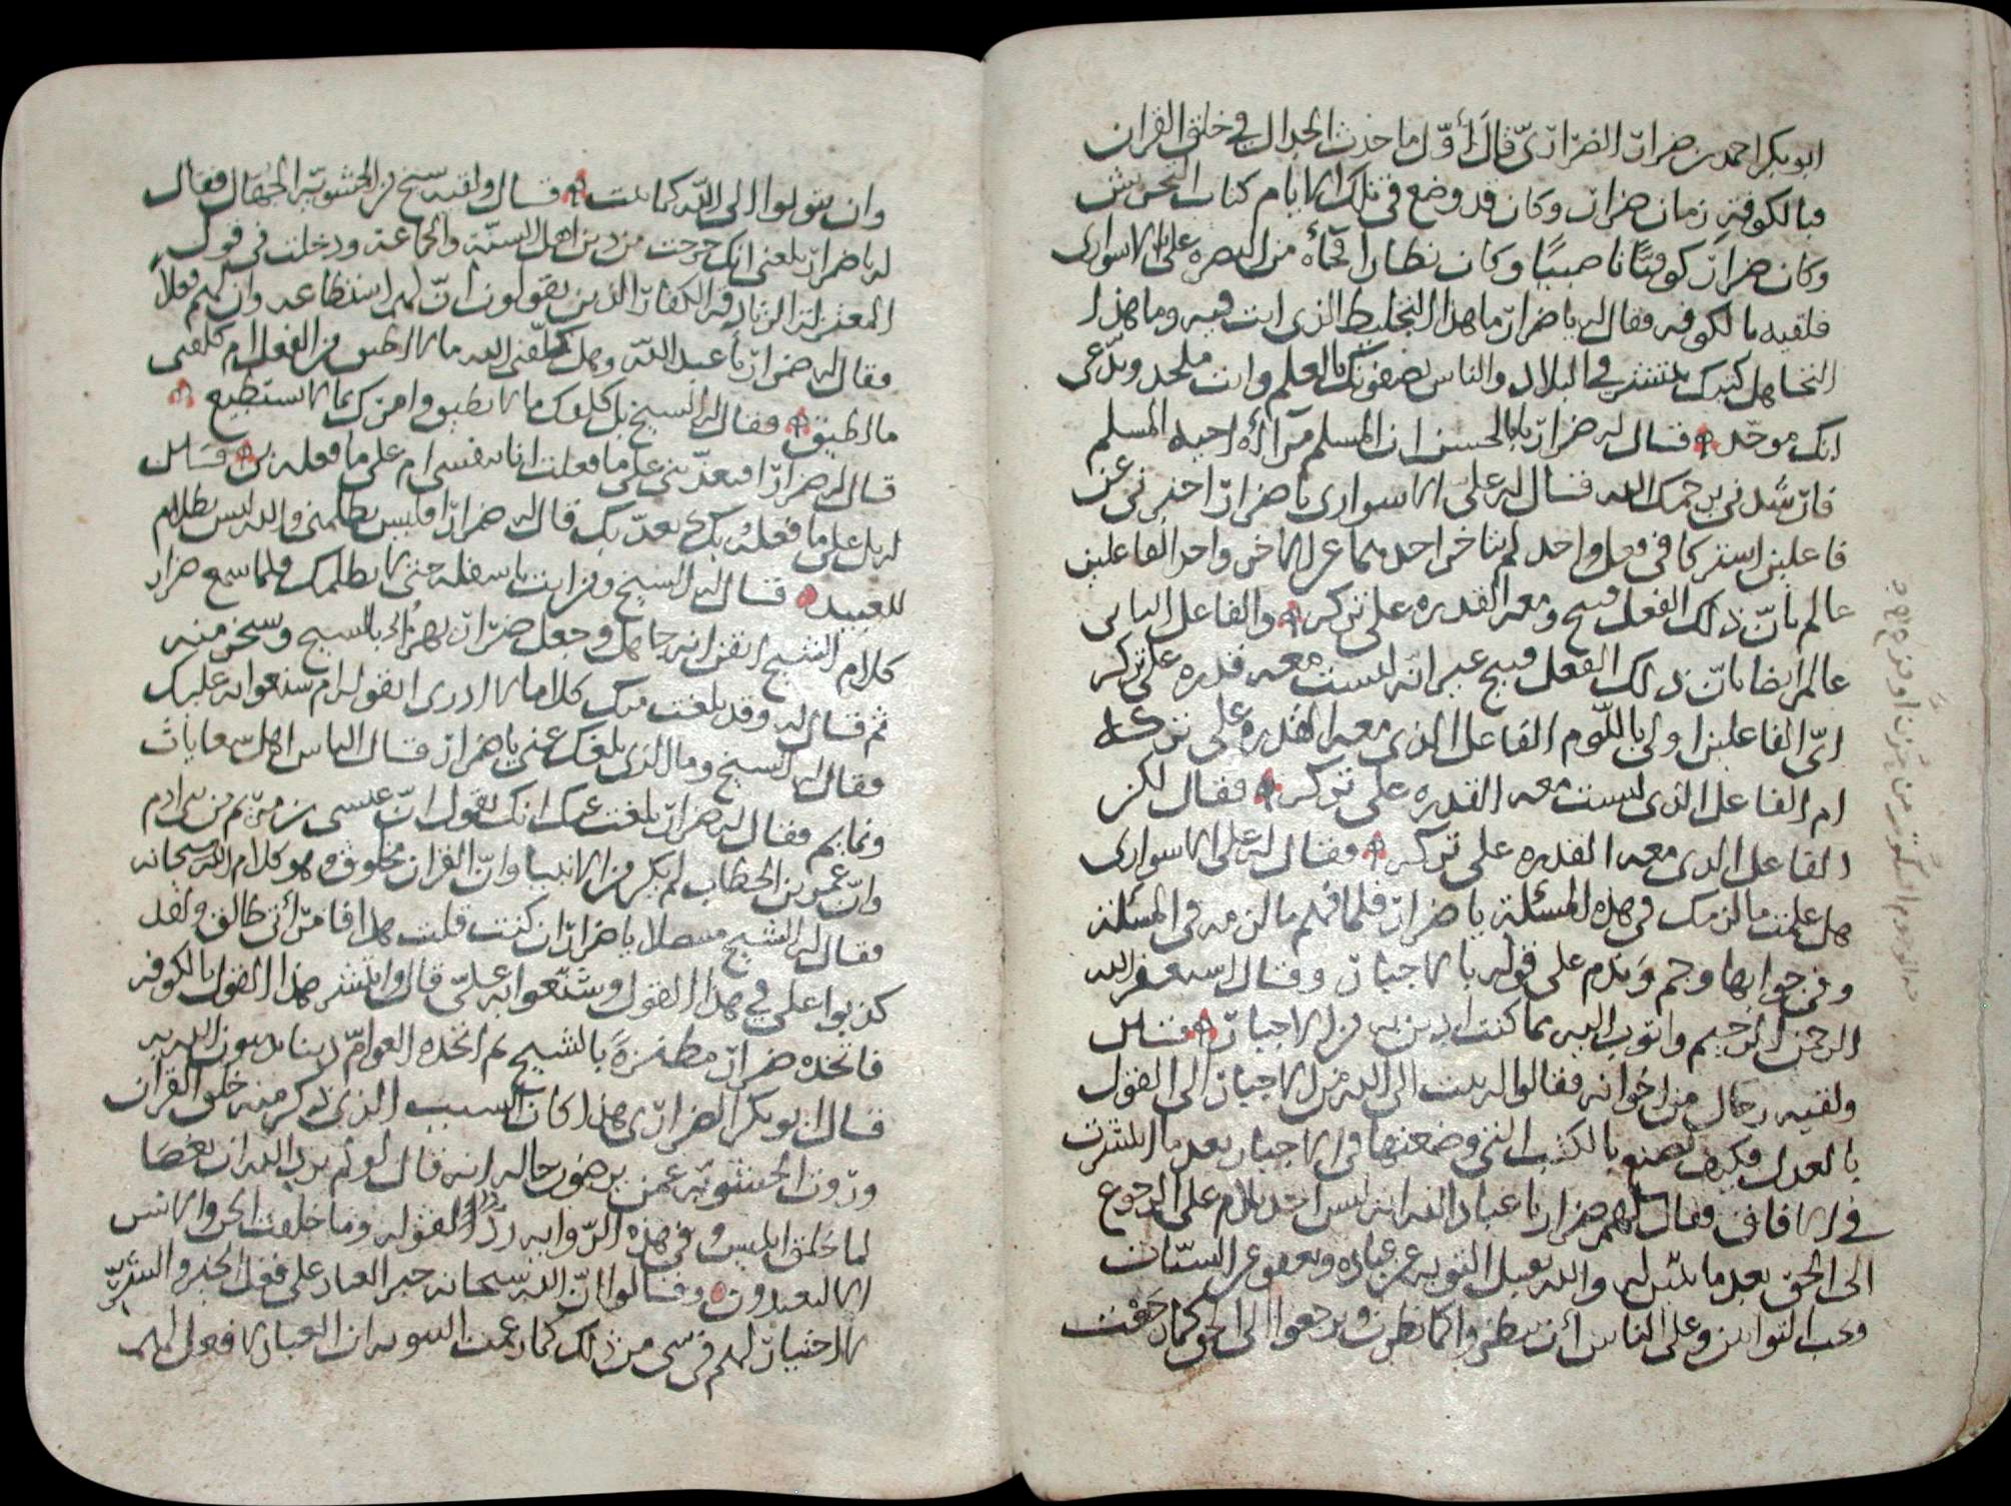 ابو بكر احمد بن ضرار الضراريّ قال أوّل ما حدث الجدال في خلق القران
بالكوفة زمان ضرار وكان قد وضع في تلك الايام كتاب التحريش
وكان ضرار كوفيّا ناصبيّا وكان نظارا من البصره على الاسوارى
فلقيه بالكوفه فقال له يا ضرار ما هذا التخليط الذى انت فيه وما هذا
التجاهل كتبك تنتشر في البلاد والناس يصفونك بالعلم وانت ملحد وتدّعى
انك موحّد فقال له ضرار يابا الحسن ان المسلم مرآة اخيه المسلم
فارشدنى يرحمك الله فقال له على الاسوارى يا ضرار اخبرنى عن
فاعلين اشتركا في فعل واحد لم يتاخر احدهما عن الاخر واحد الفاعلين
عالم بانّ ذلك الفعل قبيح ومعه القدره على تركه والفاعل الثانى
عالم ايضا بانّ ذلك الفعل قبيح غير انه ليست معه قدره على تركه
ايّ الفاعلين اولى باللّوم الفاعل الذى معه القدره على تركه
ام الفاعل الذى ليست معه القدره على تركه فقال لكن
الفاعل الذى معه القدره على تركه فقال له على الاسوارى
هل علمت ما لزمك في هذه المسئلة يا ضرار فلما فهم ما لزمه في المسئلة
وفى جوابها وجم وندم على قوله بالاجبار وقال استغفر الله
الرحمن الرحيم واتوب اليه مما كنت ادين به من الاجبار قال
ولقيه رجال من اخوانه فقالوا له تبت الى الله من الاجبار الى القول
بالعدل فكيف تصنع بالكتب التى وضعتها في الاجبار بعد ما انتشرت
في الافاق فقال لهم ضرار يا عباد الله انه ليس احد يلام على الرجوع
الى الحق بعد ما تبيّن له والله يقبل التوبه عن عباده ويعفو عن السيّات
ويحب التوابين وعلى الناس أن ينظروا كما نظرت ويرجعوا الى الحق كما رجعت
وان يتوبوا الى الله كما تبت قال ولقيه شيخ من الحشويّة الجهّال فقال
له يا ضرار بلغنى انك خرجت من دين اهل السنّة والجماعة ودخلت في قول
المعتزلة الزنادقة الكفار الذين يقولون انّ لهم استطاعه وان لهم فعلا
فقال له ضرار يا عبد اللّه وهل كلّفنى الله ما لا اطيق من الفعل ام كلفنى
ما اطيق فقال له الشيخ بل كلفك ما لا تطيق وامرك بما لا تستطيع
قال له ضرار افيعذّبنى على ما فعلت انا بنفسى ام على ما فعله بى قال
له بل على ما فعله بك يعذّبك قال له ضرار افليس يظلمنى والله ليس بظلام
للعبيد فقال له الشيخ ومن انت يا سفله حتى لا يظلمك فلما سمع ضرار
كلام الشيخ ايقن انه جاهل وجعل ضرار يهزأ بالشيخ وسخر منه
ثم قال له وقد بلغت منك كلاما لا ادرى اتقوله ام شنعوا به عليك
فقال له الشيخ وما الذى بلغك عنى يا ضرار قال الناس اهل سعايات
ونمايم فقال له ضرار بلغت عنك انك تقول انّ عيسى بن مريم من بنى ادم
وانّ عمر بن الخطاب لم يكن من الانبيا وانّ القران مخلوق وهو كلام الله سبحانه
فقال له الشيخ يا ضرار ان كنت قلت هذا فامرأتى طالق ولقد
كذبوا على في هذا القول وشنّعوا به علىّ قال وانتشر هذا القول بالكوفه
فاتخذه ضرار مطنزةً بالشيخ ثم اتخذه العوامّ دينا يدينون الله به
قال ابو بكر الضرارى هذا كان السبب الذى ذكر منه خلق القران
وروت الحشويّه عمن يرضون حاله انه قال لو لم يرد الله ان يعصا
لما خلق ابليس وفي هذه الرّوايه ردّا لقوله وما خلقت الجن والانس
الا ليعبدون وقالوا انّ الله سبحانه جبر العباد على فعل الخير والشرّ
لا اختيار لهم في شى من ذلك كما زعمت الثنويه ان العباد لا فعل لهم